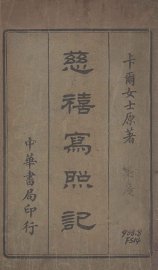 卡爾女士原著
慈禧寫照記
中華書局印行
908.8